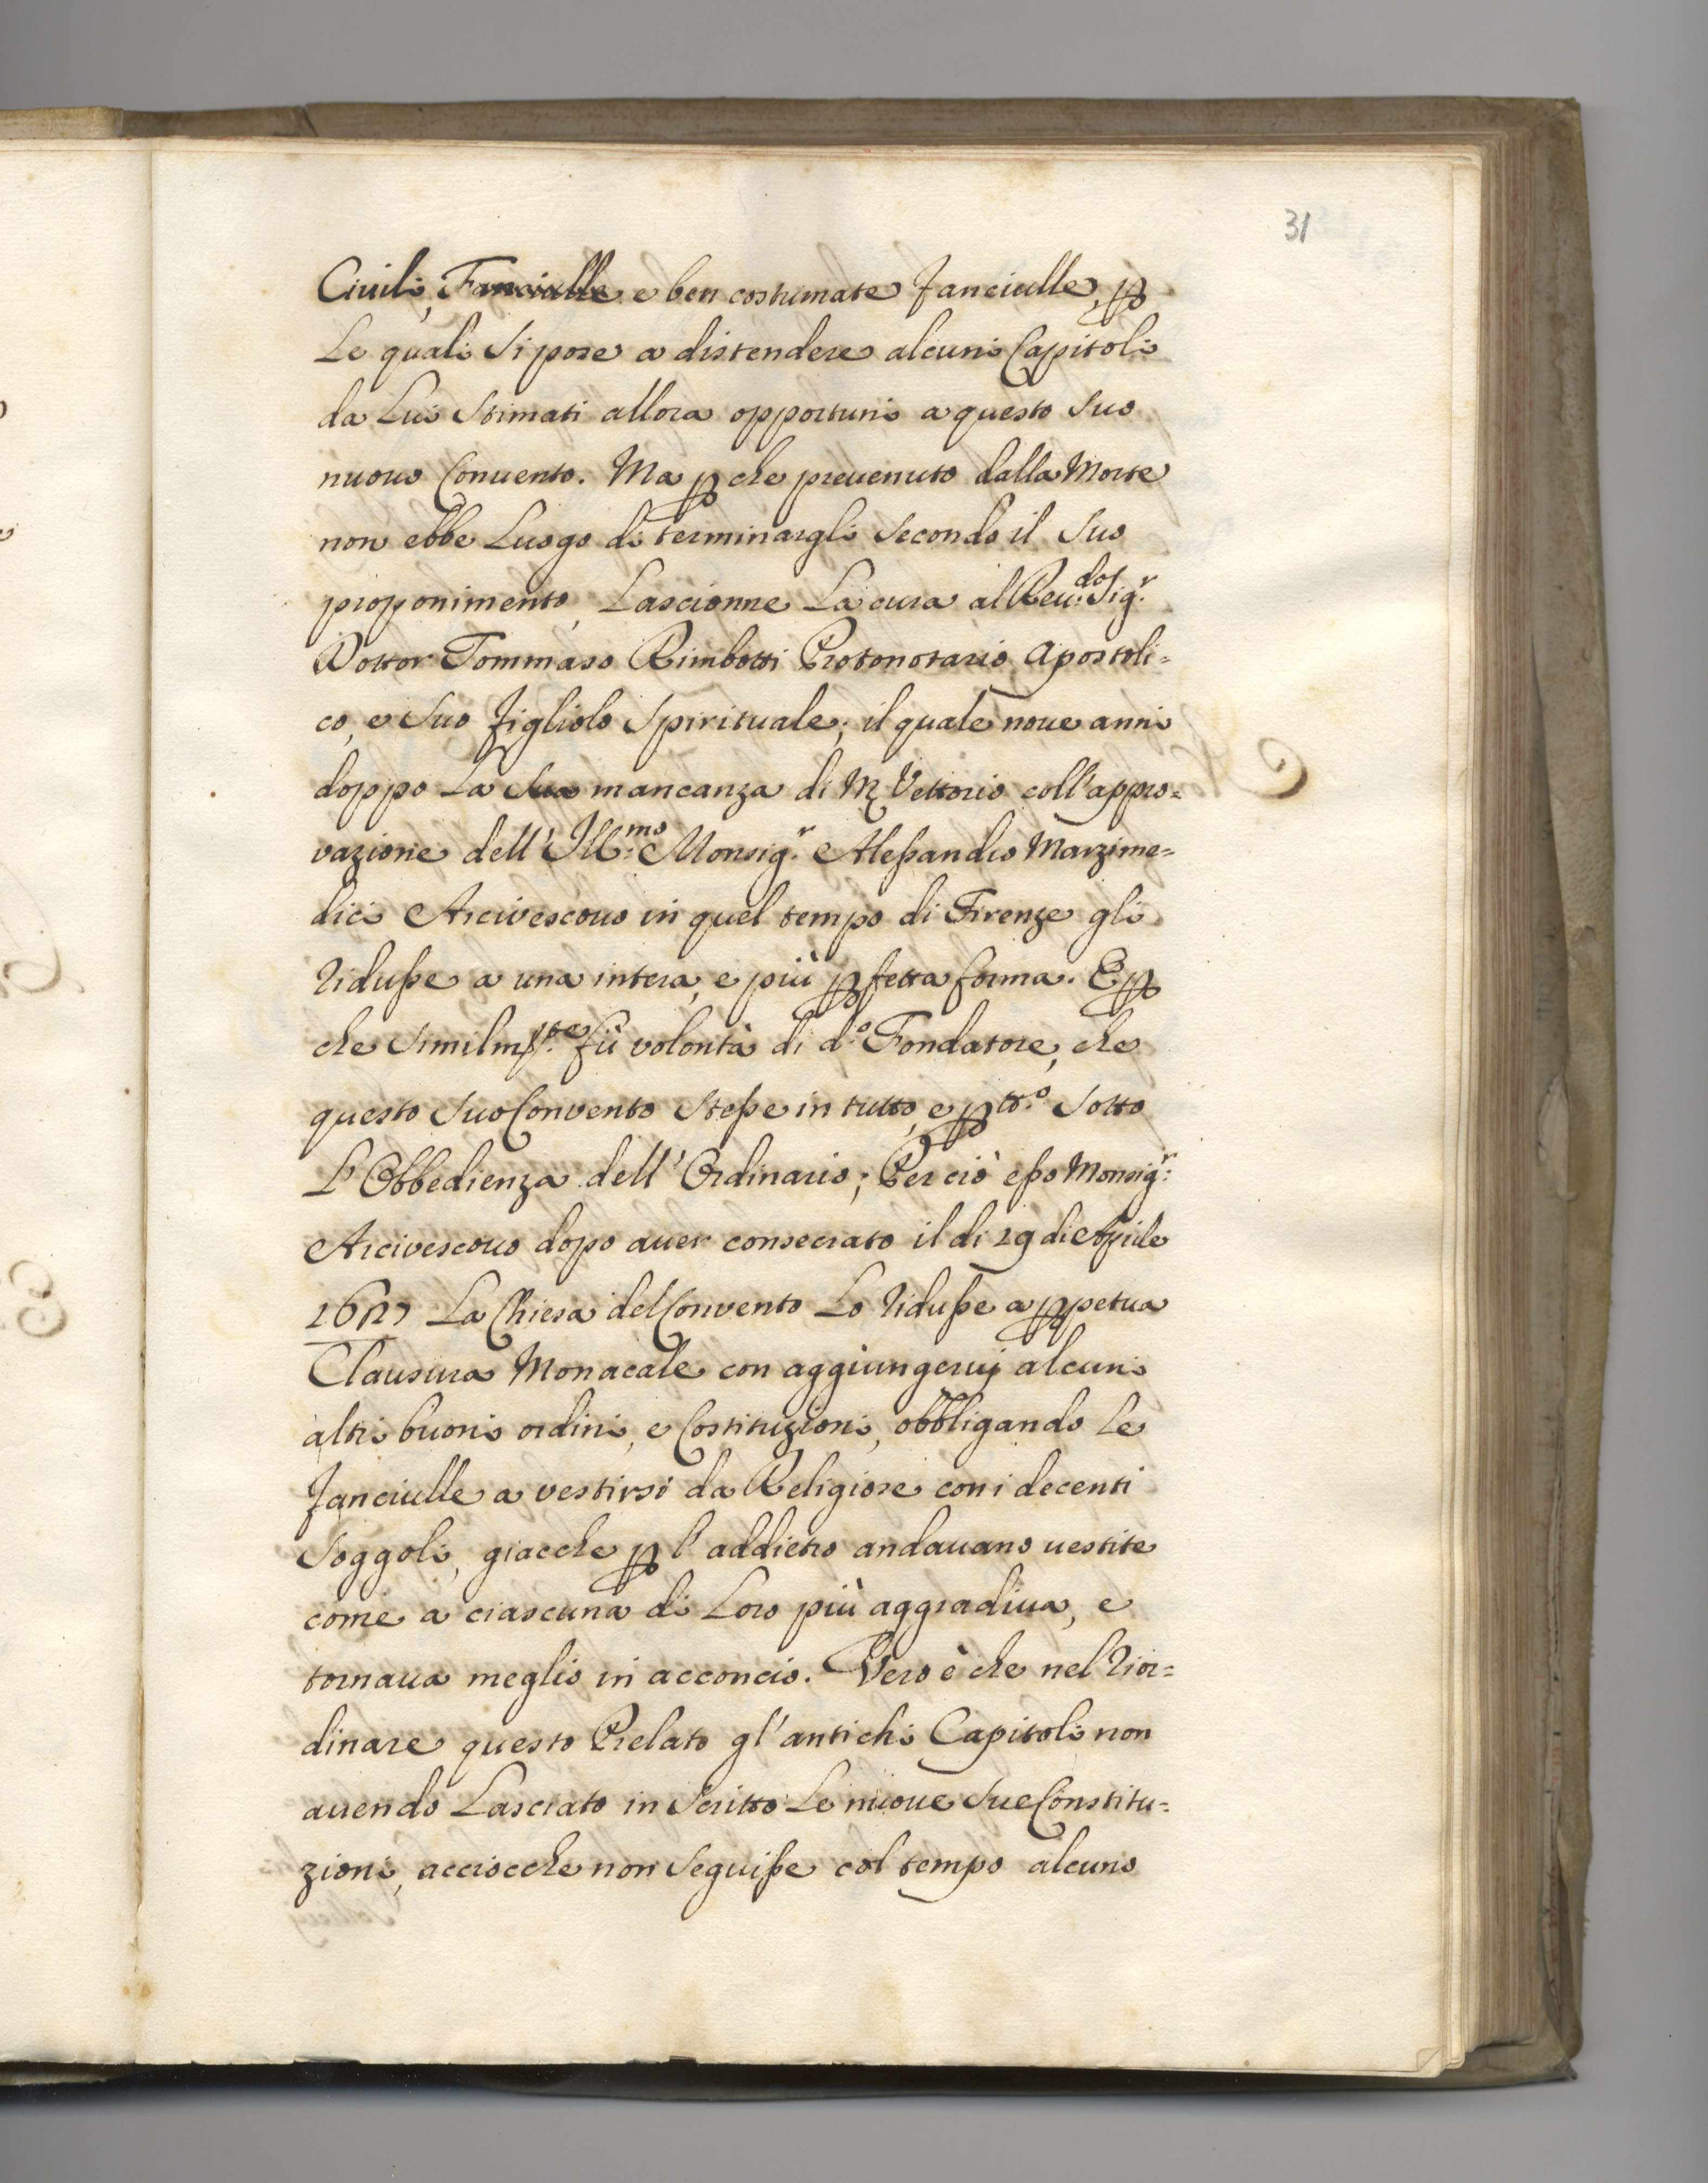 31
Civili, Fanciulle e ben costumate fanciulle, p
Le quali si pose a distendere alcuni Capitoli
da Lui stimati allora opportuni a questo suo
nuouo Conuento. Ma p che preuenuto dalla Morte
non ebbe Luogo di terminargli secondo il suo
proponimento, Lascionne La cura al Reu:do Sig.r
Dottor Tommaso Rimbotti Protonotario Apostoli=
co, e suo figliolo spirituale; il quale noue anni
doppo La sua mancanza di M Vettorio coll'appro=
vazione dell'Ill:mo Monsig.r Alessandro Marzime=
dici Arcivescouo in quel tempo di Firenze gli
ridusse a una intera, e più pfetta forma. E p
che similm.te fù volontà di d.o Fondatore, che
questo suo Convento stesse in tutto, e p tt.o sotto
L'Obbedienza dell'Ordinario; Per ciò esso Monsig.r
Arcivescouo dopo auer consecrato il di 29 di Aprile
La Chiesa del Convento Lo ridusse a ppetua
Clausura Monacale con aggiungerui alcuni
altri buoni ordini, e Costituzioni, obbligando Le
fanciulle a vestirsi da Religiose con i decenti
Soggoli, giacche p l'addietro andauano uestite
come a ciascuna di Loro più aggradiua, e
tornaua meglio in acconcio. Vero è che nel rior=
dinare questo Prelato gl'antichi Capitoli non
auendo Lasciato in scritto Le nuoue sue Constitu=
zioni, acciocche non seguisse col tempo alcuno